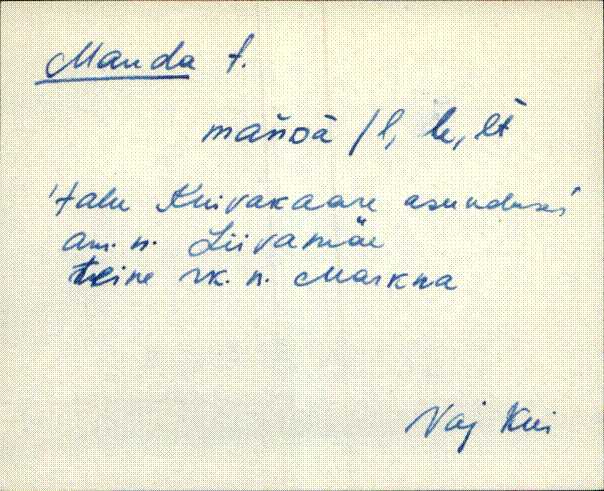 Manda t.
mańdā /l, le, lt
'talu Kuivakaare asunduses'
am. n. Liivamäe
teine rk. n. Markna
Vaj Kui